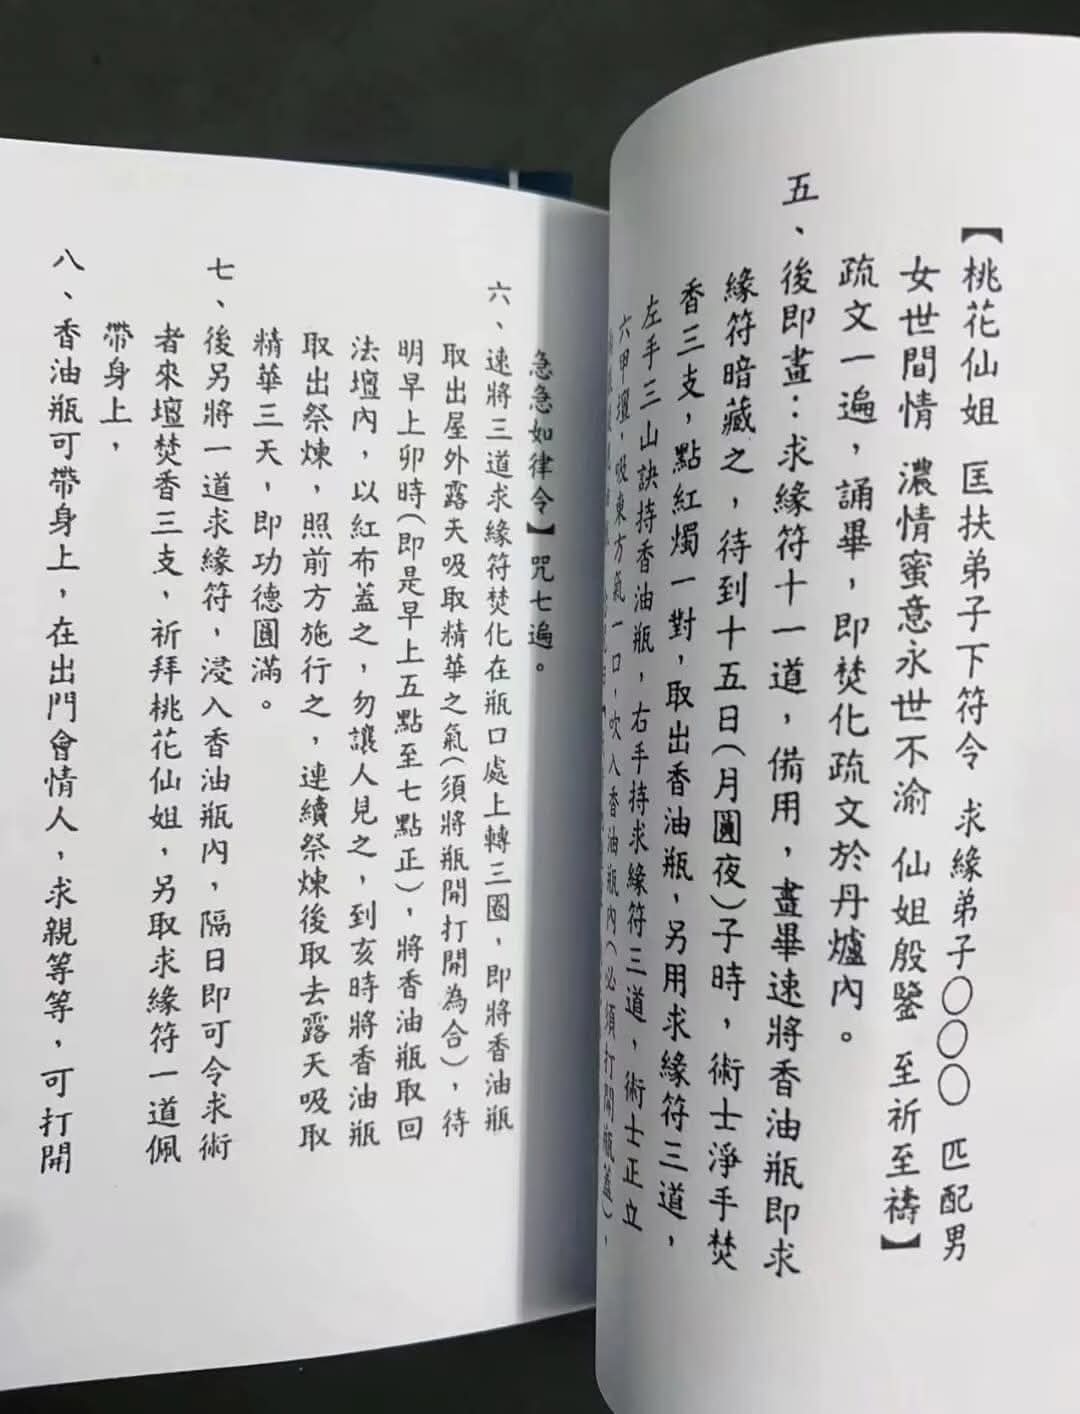 【桃花仙姐 匡扶弟子下符令 求緣弟子〇〇〇 匹配男
女世間情 濃情蜜意永世不渝 仙姐殷鑒 至祈至禱】
疏文一遍，誦畢，即焚化疏文於丹爐內。
五、後即畫：求緣符十一道，備用，畫畢速將香油瓶即求
緣符暗藏之，待到十五日(月圓夜)子時，術士淨手焚
香三支，點紅燭一對，取出香油瓶，另用求緣符三道，
左手三山訣持香油瓶，右手持求緣符三道，術士正立
六甲壇，吸東方氣一口，吹入香油瓶內(必須打開瓶蓋)，
急急如律令】咒七遍。
六、速將三道求緣符焚化在瓶口處上轉三圈，即將香油瓶
取出屋外露天吸取精華之氣(須將瓶開打開為合)，待
明早上卯時(即是早上五點至七點正)，將香油瓶取回
法壇內，以紅布蓋之，勿讓人見之，到亥時將香油瓶
取出祭煉，照前方施行之，連續祭煉後取去露天吸取
精華三天，即功德圓滿。
七、後另將一道求緣符，浸入香油瓶內，隔日即可令求術
者來壇焚香三支，祈拜桃花仙姐，另取求緣符一道佩
帶身上，
八、香油瓶可帶身上，在出門會情人，求親等等，可打開